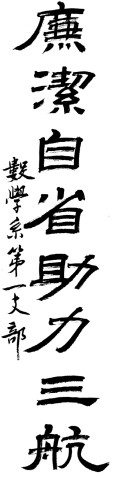 廉潔自省助力三航
數學系第一支部